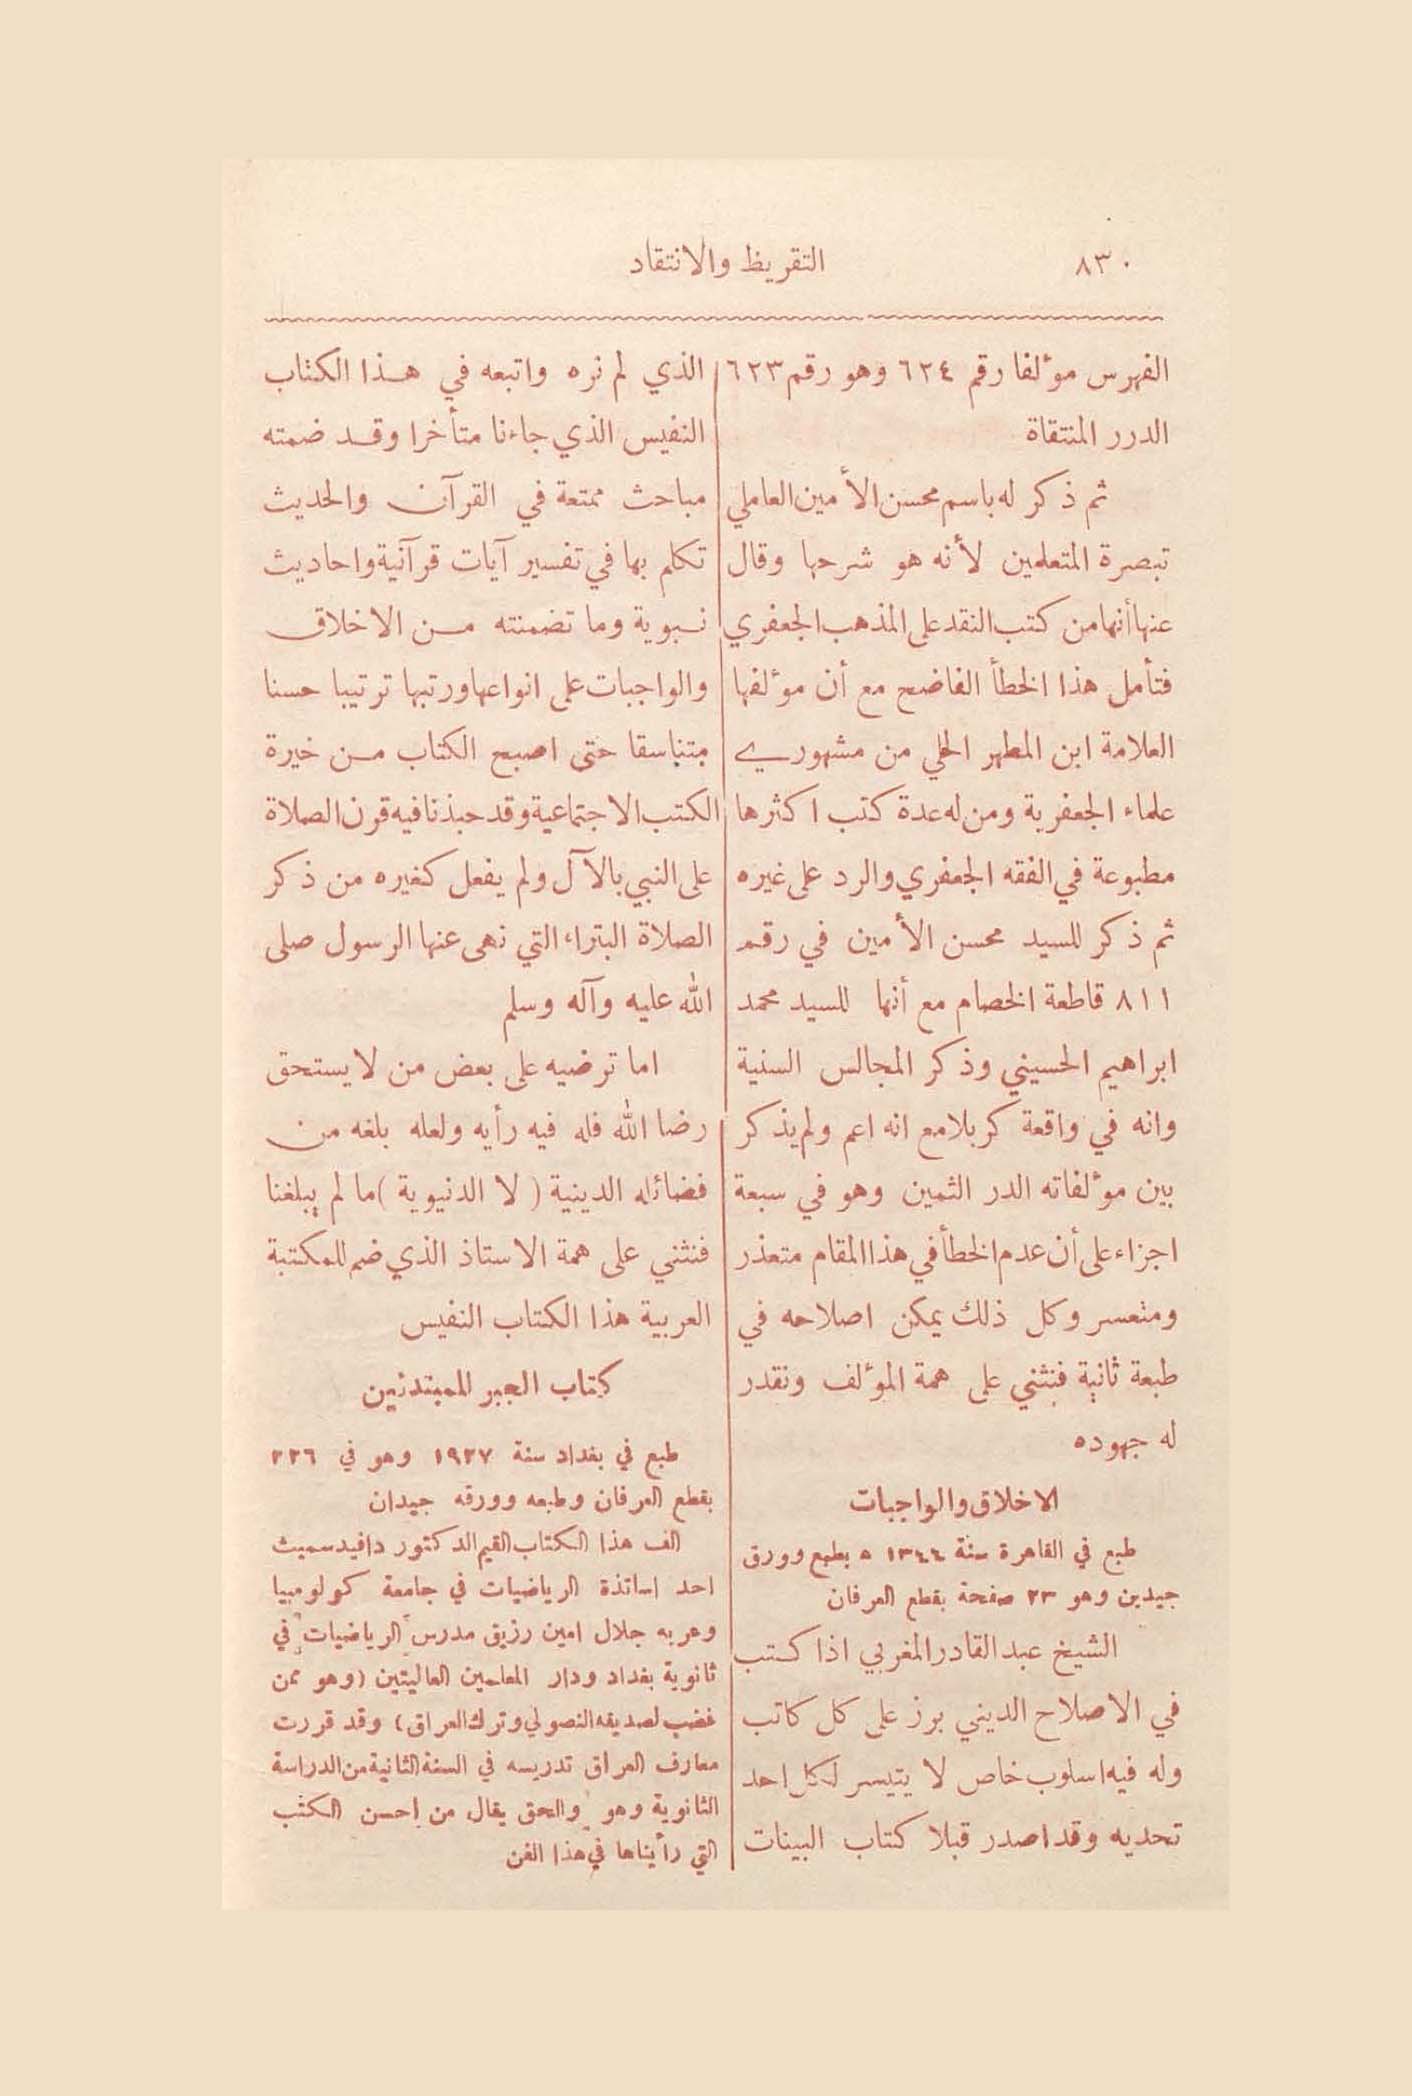 ٨٣٠
التقريظ والانتقاد
الفهرس مؤلفا رقم ٦٢٤ وهو رقم ٦٢٣
الدرر المنتقاة
ثم ذكر له باسم محسن الأمين العاملي
تبصرة المتعلمين لأنه هو شرحها وقال
عنها أنها من كتب النقد على المذهب الجعفري
فتأمل هذا الخطأ الفاضح مع أن مؤلفها
العلامة ابن المطهر الحلي من مشهوري
علماء الجعفرية ومن له عدة كتب اكثرها
مطبوعة في الفقه الجعفري والرد على غيره
ثم ذكر للسيد محسن الأمين في رقم
٨١١ قاطعة الخصام مع أنها للسيد محمد
ابراهيم الحسيني وذكر المجالس السنية
وانه في واقعة كربلا مع انه اعم ولم يذكر
بين مؤلفاته الدر الثمين وهو في سبعة
اجزاء على أن عدم الخطأ في هذا المقام متعذر
ومتعسر وكل ذلك يمكن اصلاحه في
طبعة ثانية فنثني على همة المؤلف ونقدر
له جهوده
الاخلاق والواجبات
طبع في القاهرة سنة ١٣٤٤ ه بطبع وورق
جيدين وهو ٢٣ صفحة بقطع العرفان
الشيخ عبد القادر المغربي اذا كتب
في الاصلاح الديني برز على كل كاتب
وله فيه اسلوب خاص لا يتيسر لكل احد
تحديه وقد اصدر قبلا كتاب البينات
الذي لم نره واتبعه في هذا الكتاب
النفيس الذي جاءنا متأخرا وقد ضمته
مباحث ممتعة في القرآن والحديث
تكلم بها في تفسير آيات قرآنية واحاديث
نبوية وما تضمنته من الاخلاق
والواجبات على انواعها ورتبها ترتيبا حسنا
متناسقا حتى اصبح الكتاب من خيرة
الكتب الاجتماعية وقد حبذنا فيه قرن الصلاة
على النبي بالآل ولم يفعل كغيره من ذكر
الصلاة البتراء التي نهى عنها الرسول صلى
الله عليه وآله وسلم
اما ترضيه على بعض من لا يستحق
رضا الله فله فيه رأيه ولعله بلغه من
فضائله الدينية ( لا الدنيوية ) ما لم يبلغنا
فنثني على همة الاستاذ الذي ضم للمكتبة
العربية هذا الكتاب النفيس
كتاب الجبر للمبتدئين
طبع في بغداد سنة ١٩٢٧ وهو في ٢٢٦
بقطع العرفان وطبعه وورقه جيدان
الف هذا الكتاب القيم الدكتور دافيد سميث
احد اساتذة الرياضيات في جامعة كولومبيا
وعربه جلال امين رزيق مدرس الرياضيات في
ثانوية بغداد ودار المعلمين العاليتين (وهو ممن
غضب لصديقه النصولي وترك العراق) وقد قررت
معارف العراق تدريسه في السنة الثانية من الدراسة
الثانوية وهو والحق يقال من احسن الكتب
التي رأيناها في هذا الفن